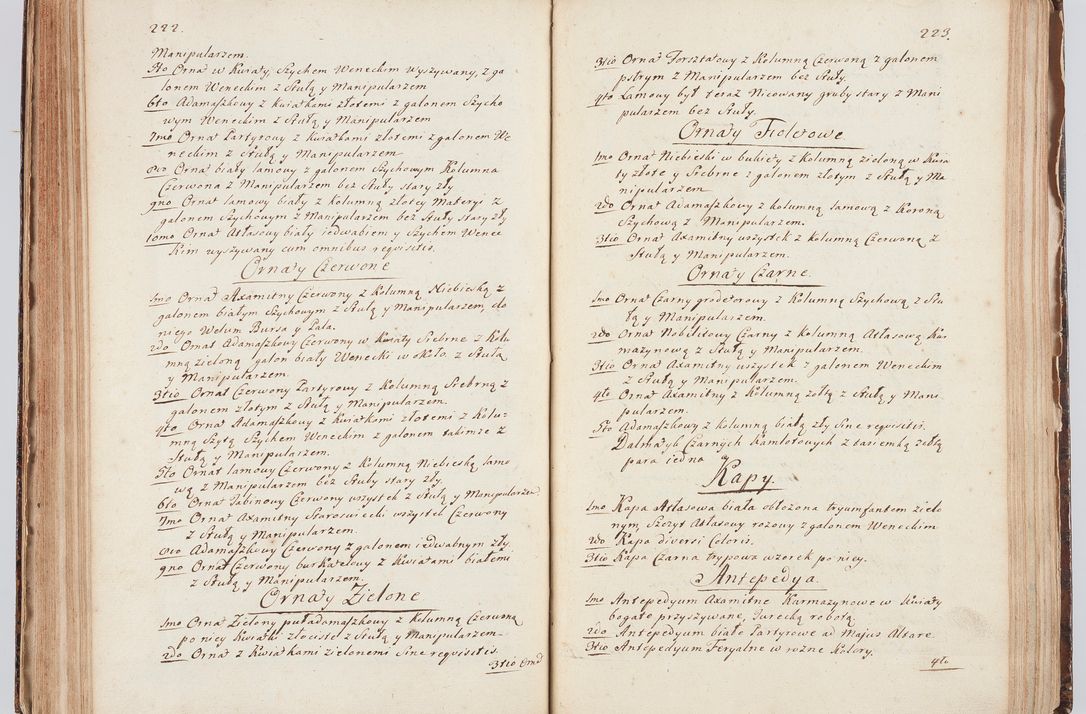 222.
Manipularzem.
5to Ornat w kwiaty, Szychem Weneckim wyszywany, z ga
lonem Weneckim z Stułą y Manipularzem
6to Adamaszkowy z kwiatkami złotemi z galonem Szycho
wym Weneckim z Stułą y Manipularzem
7mo Ornat Partyrowy z kwiatkami złotemi z galonem We
neckim z Stułą y Manipularzem
8vo Ornat biały lamowy z galonem Szychowym Kolumna
Czerwona z Manipularzem bez Stuły stary zły
9no Ornat lamowy biały z kolumną złotey Materyi z
galonem Szychowym z Manipularzem bez Stuły stary zły
10mo Ornat Atłasowy biały iedwabiem y Szychem Wenec
kim wyszywany cum omnibus requisitis.
Ornaty Czerwone
1mo Ornat Axamitny Czerwony z Kolumną Niebieską z
galonem białym Szychowym z Stułą y Manipularzem, do
niego Welum Bursa y Pala.
2do Ornat Adamaszkowy Czerwony w Kwiaty Srebrne z Kolu
mną zieloną galon biały Wenecki w około. z Stułą
y Manipularzem.
3tio Ornat Czerwony Partyrowy z Kolumną Srebrną z
galonem złotym z Stułą y Manipularzem.
4to Ornat Adamaszkowy z Kwiatkami złotemi z Kolu-
mną Szytą Szychem Weneckim z galonem takimże z
Stułą y Manipularzem.
5to Ornat lamowy Czerwony z Kolumną Niebieską lamo
wą z Manipularzem bez Stuły stary zły.
6to Ornat Tabinowy Czerwony wszystek z Stułą y Manipularzem
7mo Ornat Axamitny Staroswiecki wszystek Czerwony
z Stułą y Manipularzem.
8vo Adamaszkowy Czerwony z galonem iedwabnym zły.
9no Ornat Czerwony burkatelowy z Kwiatami białemi
z Stułą y Manipularzem.
Ornaty Zielone
1mo Ornat Zielony puładamaszkowy z Kolumną Czerwoną
po niey Kwiatki złociste z Stułą y Manipularzem-
2do Ornat z Kwiatkami zielonemi Sine requisitis.
3tio Ornat
223.
3tio Ornat Forsztatowy z Kolumną Czerwoną z galonem
pstrym z Manipularzem bez Stuły.
4to Lamowy był teraz Nicowany gruby stary z Mani
pularzem bez Stuły.
Ornaty Fioletowe
1mo Ornat Niebieski w bukiety z kolumną zieloną w Kwia
ty złote y Srebrne z galonem złotym z Stułą y Ma
nipularzem
2do Ornat Adamaszkowy z kolumną lamową z Koroną
Szychową z Manipularzem.
3tio Ornat Axamitny wszystek z kolumną Czerwoną z
Stułą y Manipularzem.
Ornaty Czarne.
1mo Ornat Czarny grodetorowy z Kolumną Szychową z Stu
łą y Manipularzem.
2do Ornat Nobilisowy Czarny z kolumną Atłasową Kar
mazynową z Stułą y Manipularzem.
3tio Ornat Axamitny wszystek z galonem Weneckim
z Stułą y Manipularzem.
4to Ornat Axamitny z Kolumną zołtą z Stułą y Mani-
pularzem.
5to Adamaszkowy z kolumną białą zły Sine requisitis.
Dalmatyk Czarnych Kamlotowych z tasiemką żołtą
para iedna
Kapy.
1mo Kapa Atłasowa biała obłożona tryumfantom zielo
nym, Szczyt Atłasowy rożowy z galonem Weneckim
2do Kapa diversi Coloris.
3tio Kapa Czarna trypowa wzorek po niey.
Antepedya.
1mo Antepedyum Axamitne Karmazynowe w Kwiaty
bogato przyszywane, Turecką robotą.
2do Antepedyum białe Partyrowe ad Majus Altare.
3tio Antepedyum Feryalne w rożne Kolory.
4to